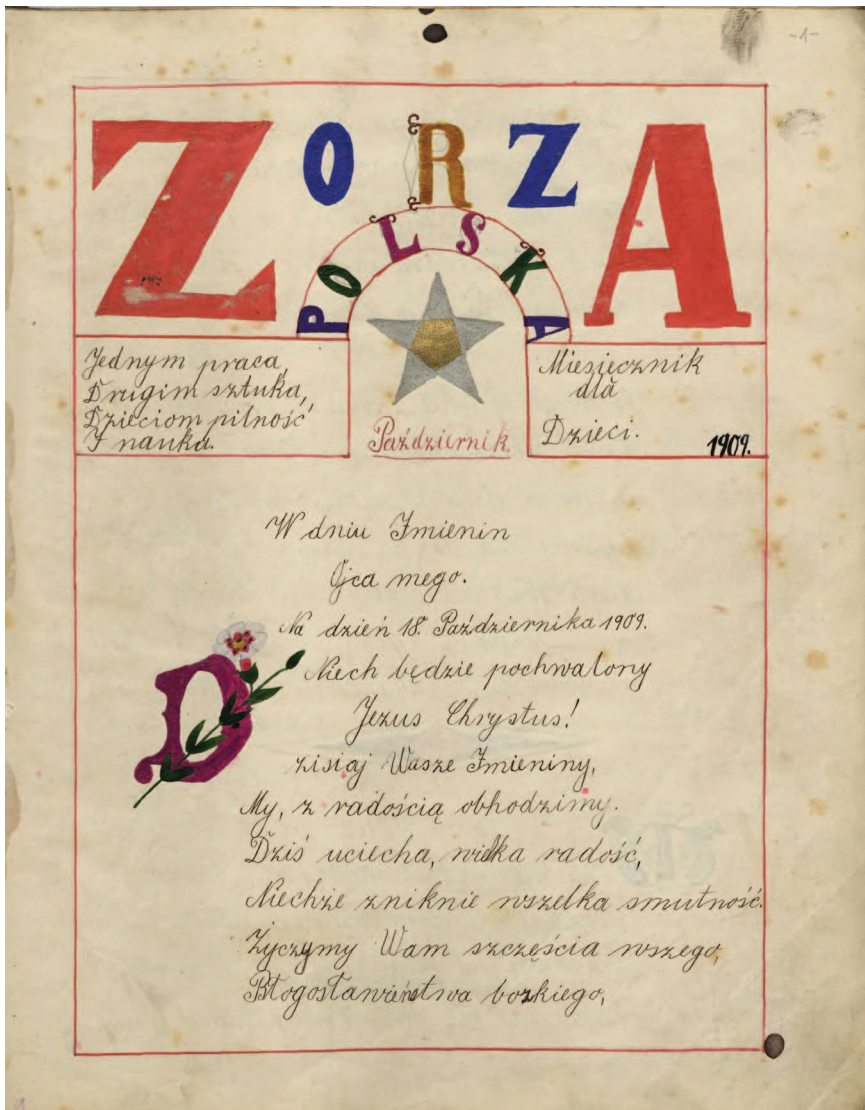 -1-
ZORZA
POLSKA
Jednym praca,
Drugim sztuka,
Dzieciom pilność
I nauka.
Październik.
Miesięcznik
dla
Dzieci.
1909.
W dniu Imienin
Ojca mego.
Na dzień 18. Października 1909.
Niech będzie pochwalony
Jezus Chrystus!
Dzisiaj Wasze Imieniny,
My, z radością obhodzimy.
Dziś uciecha, wielka radość,
Niechże zniknie wszelka smutność.
Życzymy Wam szczęścia wszego,
Błogosławieństwa bozkiego,